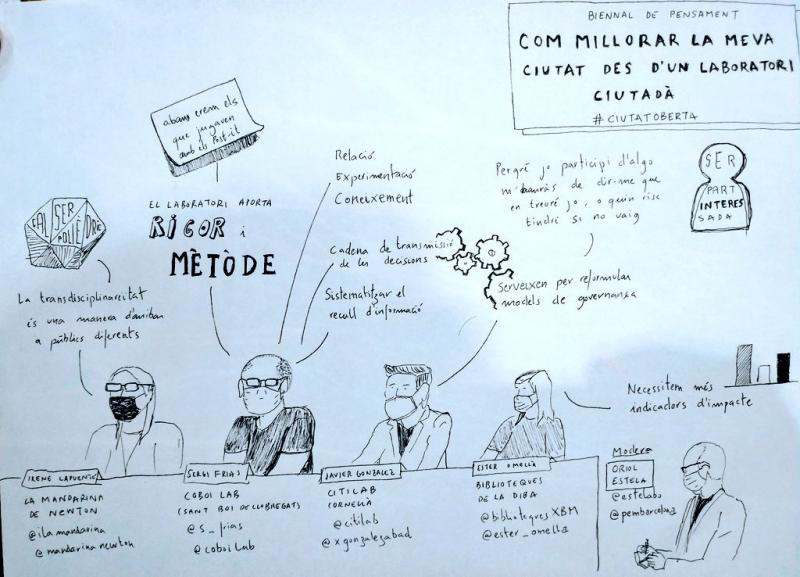 BIENNAL DE PENSAMENT
COM MILLORAR LA MEVA
CIUTAT DES D'UN LABORATORI
CIUTADÀ
#CIUTATOBERTA
abans erem els
que jugaven
amb els Post-it
Relació
Experimentació
Coneixement
Perqué jo participi d'algo
m'hauràs de dir-me que
en treuré jo, o quin risc
tindré si no vaig
SER
PART
INTERES
SADA
CAL SER POLIEDRE
EL LABORATORI APORTA
RIGOR i
MÈTODE
Cadena de transmissió
de les decisions
Serveixen per reformular
models de governança
Sistematitzar el
recull d'informació
La transdisciplinarietat
és una manera d'arribar
a públics diferents
Necessitem més
indicadors d'impacte
IRENE LAPUENTE
LA MANDARINA
DE NEWTON
@ila mandarina
@mandarina newton
SERGI FRIAS
COBOI LAB
(SANT BOI DE LLOBREGAT)
@s_frias
@coboi Lab
JAVIER GONZALEZ
CITILAB
CORNELLÀ
@citilab
@xgonzalezabad
ESTER OMELLÀ
BIBLIOTEQUES
DE LA DIBA
@bibliotequesXBM
@ester_omella
Modera
ORIOL
ESTELA
@estelabo
@pembarcelona